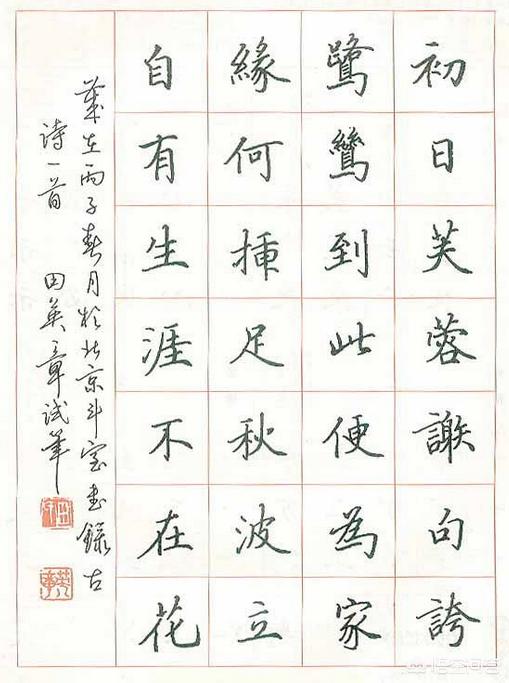 初日芙蓉謝句誇
鷺鷥到此便為家
緣何揷足秋波立
自有生涯不在花
歲在丙子春月於北京斗室書錄古
诗一首 田英章試筆
悟空问答